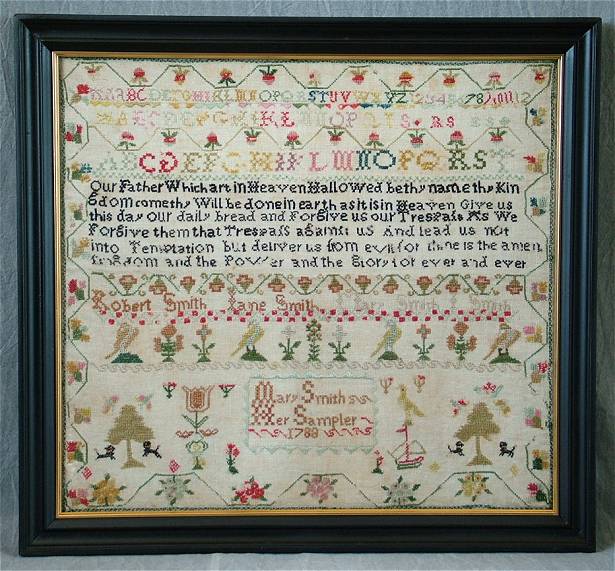 ABCDEFGHIKLMNOPQRSTUVWXYZ 12345678910 11 12
ABCDEFGHIKL
ABCDEFGHIKLMNOPQRST
Our Father Which art in Heaven Hallowed be thy name thy Kin
gdom come thy Will be done in earth as it is in Heaven Give us
this day our daily bread and Forgive us our Trespaſs As We
Forgive them that Trespaſs against us And lead us not
into Temptation but deliver us from evil for thine is the amen
kingdom and the Power and the Glory for ever and ever
Robert Smith Jane Smith Smith Smith
Mary Smith
Her Sampler
1788